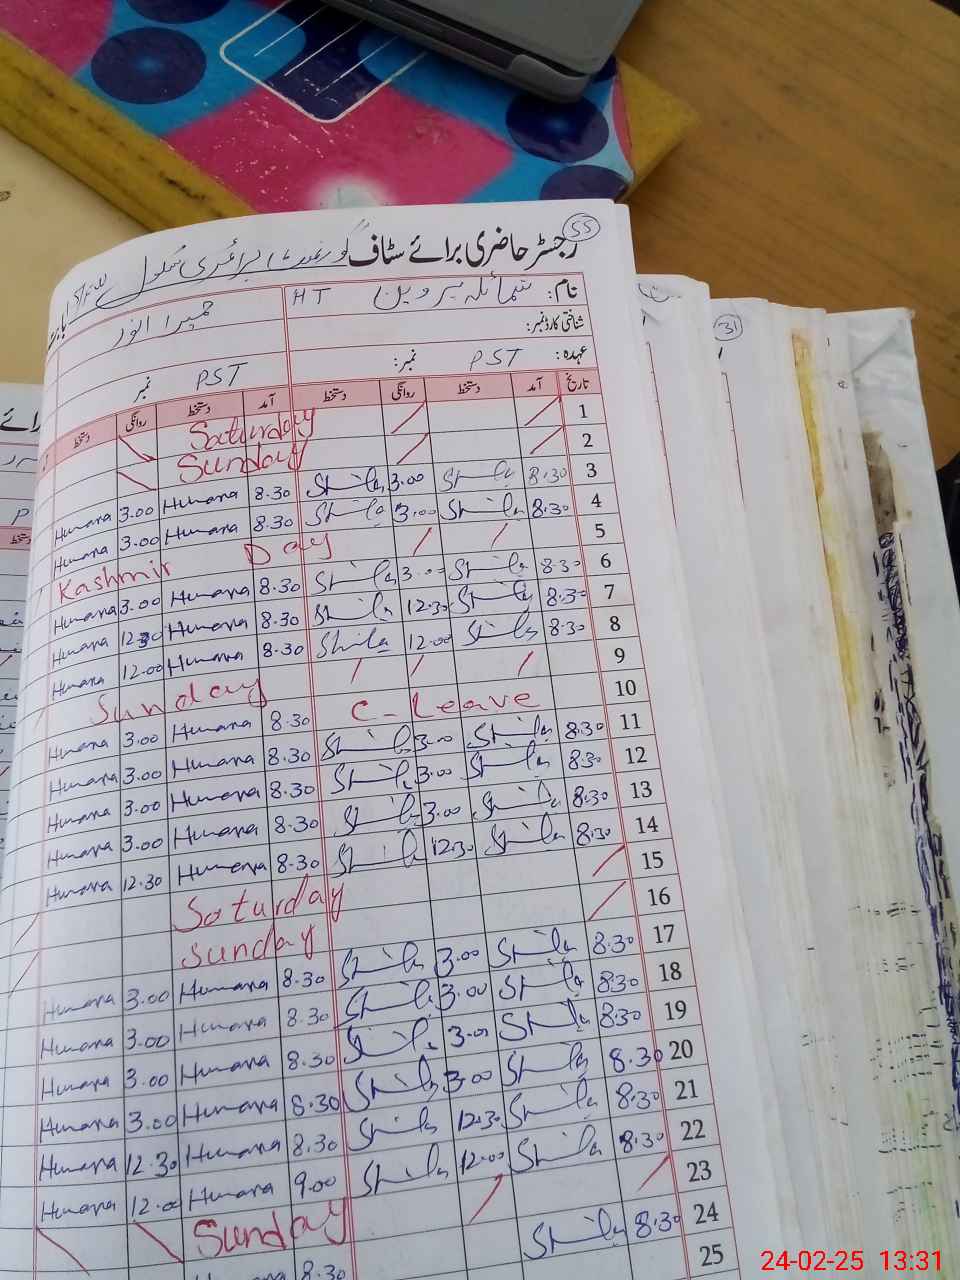 55
رجسٹر حاضری برائے سٹاف گورنمنٹ پرائمری سکول
نام: شمائلہ پروین HT حمیرا انور
شناختی کارڈ نمبر:
عہدہ: PST نمبر: PST نمبر
تاریخ آمد دستخط روانگی دستخط آمد دستخط روانگی دستخط
1 Saturday
2 Sunday
3 8.30 Shila 3.00 Shila 8.30 Humara 3.00 Humara
4 8.30 Shila 3.00 Shila 8.30 Humara 3.00 Humara
5 Kashmir Day
6 8.30 Shila 3.00 Shila 8.30 Humara 3.00 Humara
7 8.30 Shila 12.30 Shila 8.30 Humara 12.30 Humara
8 8.30 Shila 12.00 Shila 8.30 Humara 12.00 Humara
9 Sunday
10 C-Leave 8.30 Humara 3.00 Humara
11 8.30 Shila 3.00 Shila 8.30 Humara 3.00 Humara
12 8.30 Shila 3.00 Shila 8.30 Humara 3.00 Humara
13 8.30 Shila 3.00 Shila 8.30 Humara 3.00 Humara
14 8.30 Shila 12.30 Shila 8.30 Humara 12.30 Humara
15 Saturday
16 Sunday
17 8.30 Shila 3.00 Shila 8.30 Humara 3.00 Humara
18 8.30 Shila 3.00 Shila 8.30 Humara 3.00 Humara
19 8.30 Shila 3.00 Shila 8.30 Humara 3.00 Humara
20 8.30 Shila 3.00 Shila 8.30 Humara 3.00 Humara
21 8.30 Shila 12.30 Shila 8.30 Humara 12.30 Humara
22 8.30 Shila 12.00 Shila 9.00 Humara 12.00 Humara
23 Sunday
24 8.30 Shila 8.30
25
31
24-02-25 13:31